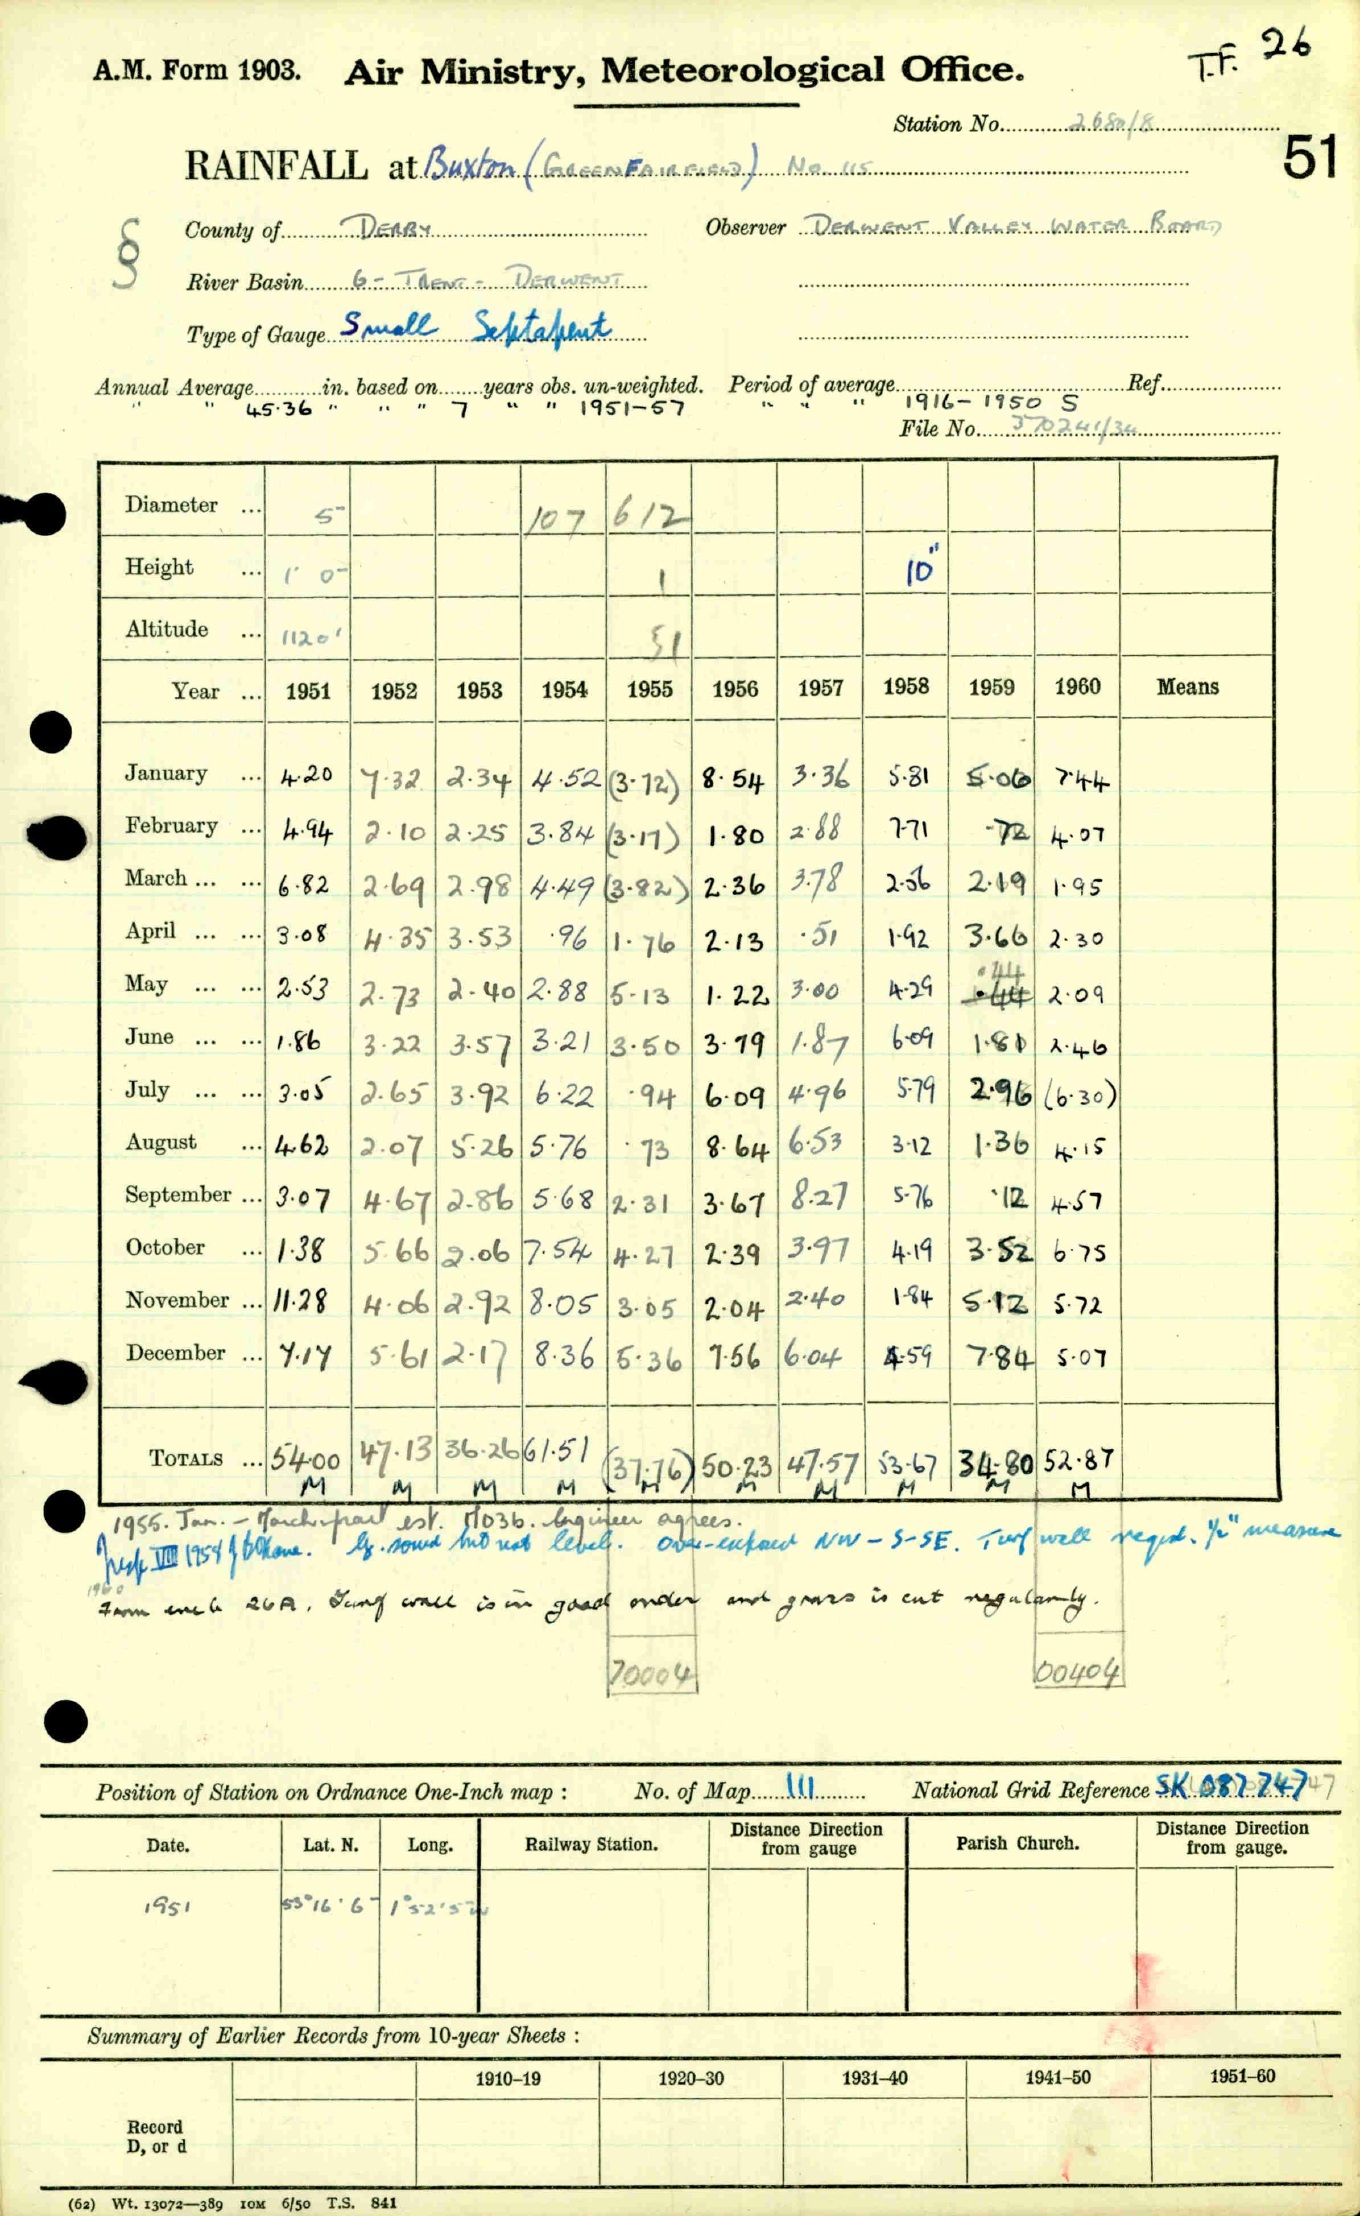 T.F. 26
A.M. Form 1903. Air Ministry, Meteorological Office.
Station No. 2680/8
51
RAINFALL at Buxton (GREENFAIRFIELD) No 115
County of DERBY Observer DERWENT VALLEY WATER BOARD
River Basin 6 - TRENT - DERWENT
Type of Gauge Small Septapent
Annual Average in. based on years obs. un-weighted. Period of average Ref.
" " 45.36 " " " 7 " " 1951-57 " " " 1916-1950 S
File No. 370241/34
Diameter ... 5 107 612
Height ... 1' 0 1 10"
Altitude ... 1120' 51
Year ... 1951 1952 1953 1954 1955 1956 1957 1958 1959 1960 Means
January ... 4.20 7.32 2.34 4.52 (3.72) 8.54 3.36 5.81 5.06 7.44
February ... 4.94 2.10 2.25 3.84 (3.17) 1.80 2.88 7.71 .72 4.07
March ... ... 6.82 2.69 2.98 4.49 (3.82) 2.36 3.78 2.56 2.19 1.95
April ... ... 3.08 4.35 3.53 .96 1.76 2.13 .51 1.92 3.66 2.30
.44
May ... ... 2.53 2.73 2.40 2.88 5.13 1.22 3.00 4.29 .44 2.09
June ... ... 1.86 3.22 3.57 3.21 3.50 3.79 1.87 6.09 1.81 2.46
July ... ... 3.05 2.65 3.92 6.22 .94 6.09 4.96 5.79 2.96 (6.30)
August ... 4.62 2.07 5.26 5.76 .73 8.64 6.53 3.12 1.36 4.15
September ... 3.07 4.67 2.86 5.68 2.31 3.67 8.27 5.76 .12 4.57
October ... 1.38 5.66 2.06 7.54 4.27 2.39 3.97 4.19 3.52 6.75
November ... 11.28 4.06 2.92 8.05 3.05 2.04 2.40 1.84 5.12 5.72
December ... 7.17 5.61 2.17 8.36 5.36 7.56 6.04 4.59 7.84 5.07
TOTALS ... 54.00 47.13 36.26 61.51 (37.76) 50.23 47.57 53.67 34.80 52.87
M M M M M M M M M M
1955. Jan. - March part est. MO3b. Engineer agrees.
Insp VIII 1958 sound but not level. Over-exposed NW - S - SE. Turf wall reqd. 1/2" measure
1960
From 26A. Turf wall is in good order and grass is cut regularly.
70004 00404
Position of Station on Ordnance One-Inch map : No. of Map 111 National Grid Reference SK 087747
Date. Lat. N. Long. Railway Station. Distance Direction from gauge Parish Church. Distance Direction from gauge.
1951 53° 16' 6" 1° 52' 5" W
Summary of Earlier Records from 10-year Sheets :
1910–19 1920–30 1931–40 1941–50 1951–60
Record
D, or d
(62) Wt. 13072—389 10M 6/50 T.S. 841